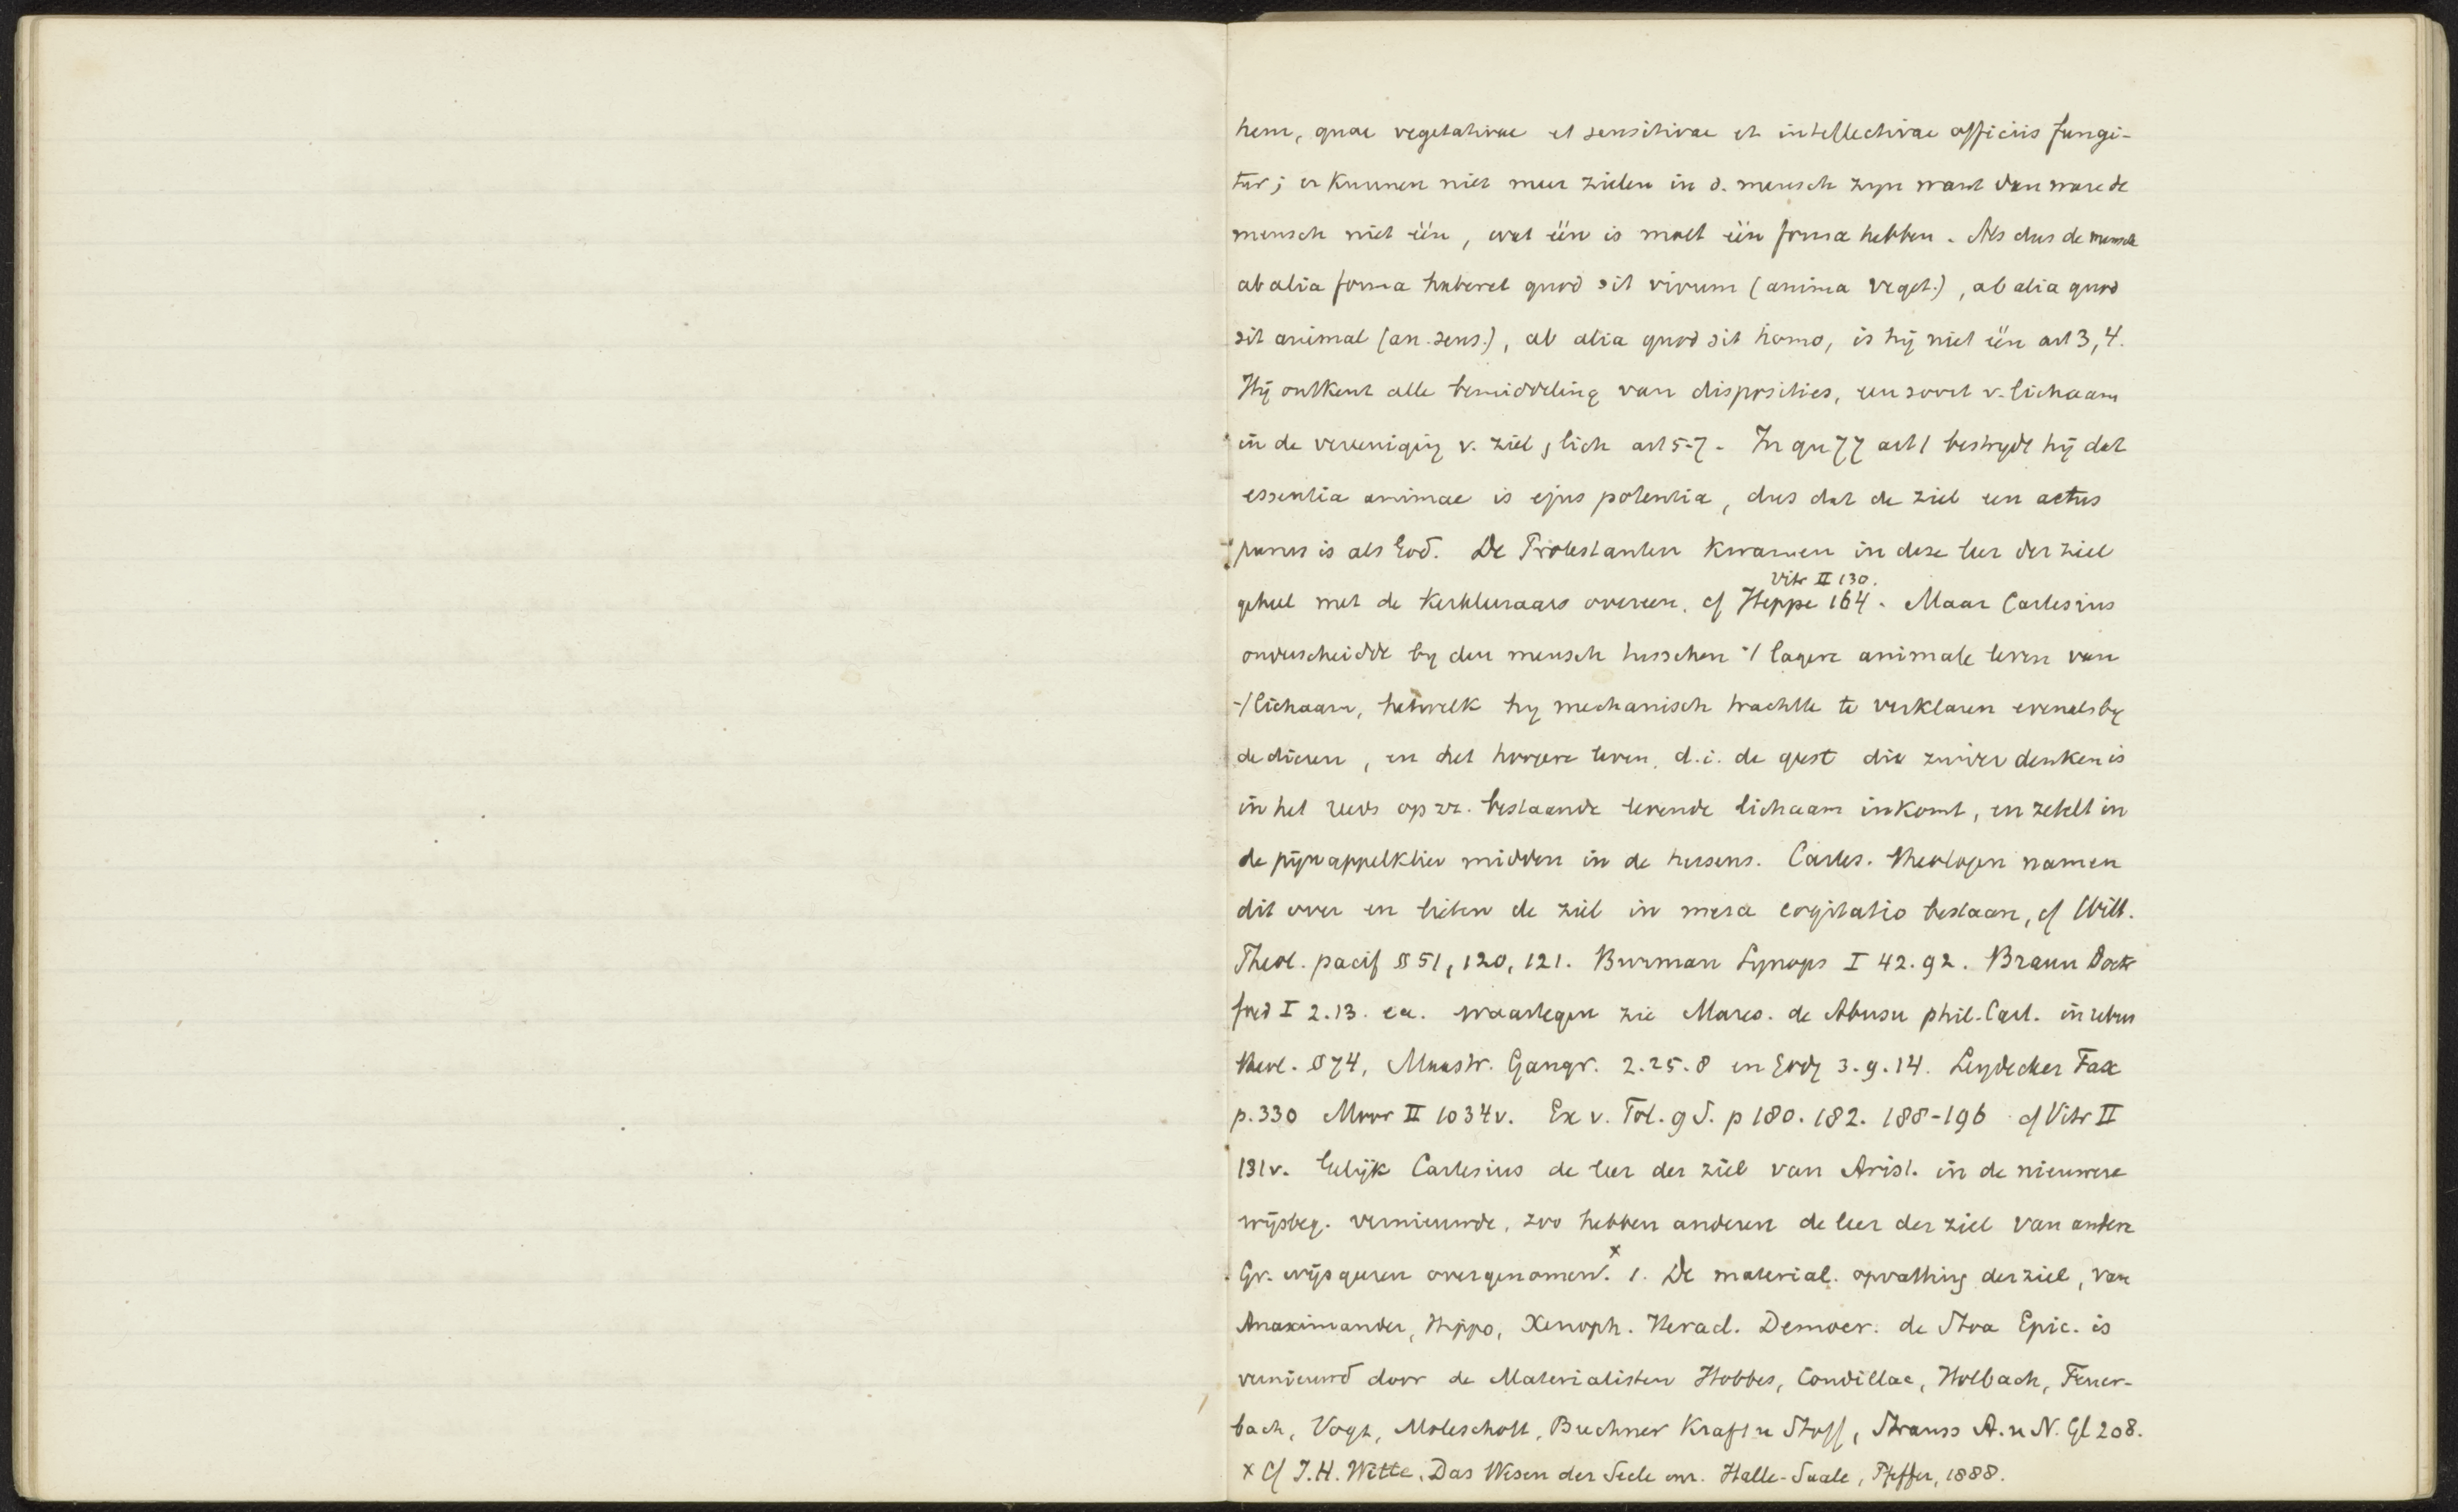 hem, quae vegetativae et sensitivae et intellectivae officiis fungi-
tur; er kunnen niet meer zielen in d. mensch zyn want dan ware de
mensch niet één, wat één is moet één forma hebben. Als dus de mensch
ab alia forma haberet quod sit vivum (anima veget.), ab alia quod
sit animal (an. sens.), ab alia quod sit homo, is hij niet één art 3, 4.
Hij ontkent alle bemiddeling van disposities, een soort v. lichaam
in de vereeniging v. ziel, lich art 5-7. In qu 77 art 1 bestrydt hij dat
essentia animae is ejus potentia, dus dat de ziel een actus
purus is als God. De Protestanten kwamen in deze leer der ziel
Vitr II 130.
geheel met de kerkleraars overeen, cf Heppe 164. Maar Cartesius
onderscheidde by den mensch tusschen 't lagere animale leven van
't lichaam, hetwelk hy mechanisch trachtte te verklaren evenals by
de dieren, en het hoogere leven, d.i. de geest die zuiver denken is
in het reeds op zz. bestaande levende lichaam inkomt, en zetelt in
de pijnappelklier midden in de hersens. Cartes. theologen namen
dit over en lieten de ziel in mera cogitatio bestaan, cf Witt.
Theol. pacif §§ 51, 120, 121. Burman Synops I 42.92. Braun Doctr
foed I 2.13. ea. waartegen zie Mares. de Abusu phil. Cart. in rebus
theol. § 74, Maastr. Gangr. 2.25.8 en Godg 3.9.14. Leydecker Fax
p. 330 Moor II 1034v. Ex v. Tol. 9 S. p 180. 182. 188-196 cf Vitr II
131v. Gelijk Cartesius de leer der ziel van Arist. in de nieuwere
wijsbeg. vernieuwde, zoo hebben anderen de leer der ziel van andere
Gr. wijsgeeren overgenomen.x 1. De material. opvatting der ziel, van
Anaximander, Hippo, Xenoph. Heracl. Democr. de Stoa Epic. is
vernieuwd door de Materialisten Hobbes, Condillac, Holbach, Feuer-
bach, Vogt, Moleschott, Buchner Kraft u Stoff, Strauss A. u N. Gl 208.
x Cf J.H. Witte, Das Wesen der Seele enr. Halle-Saale, Pfeffer, 1888.